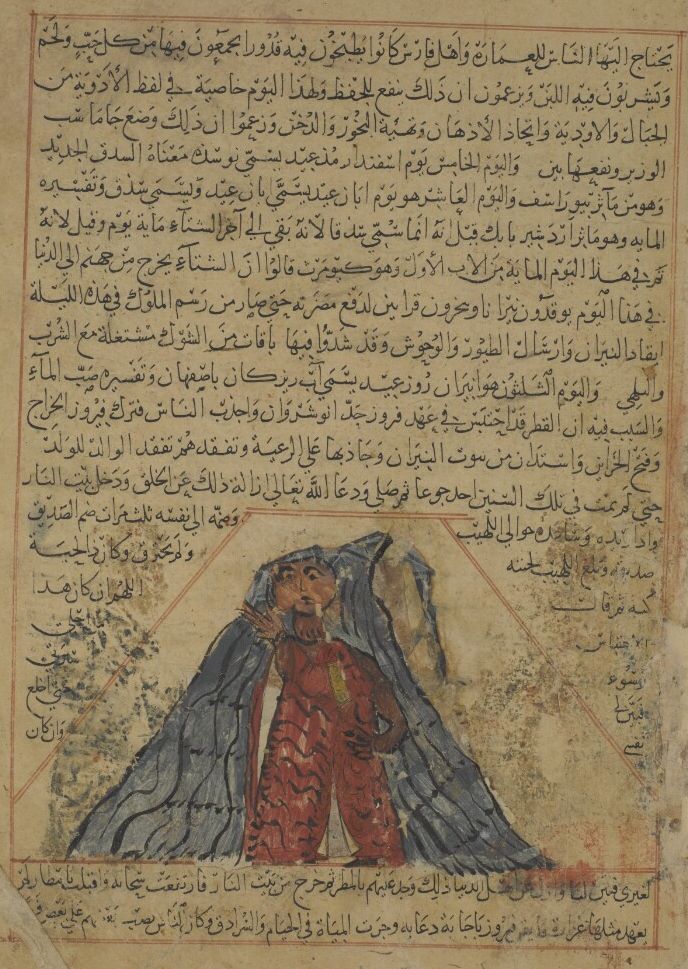 يحتاج اليها الناس للعمارة واهل فارس كانوا يطبخون فيه قدورا يجمعون فيها من كل حب ولحم
فيه اللبن ويزعمون ان ذلك ينفع للحفظ ولهذا اليوم خاصية في لفظ الادوية من
الجبال والاودية واتخاذ الادهان وتهية البخور والدخن وزعموا ان ذلك وضع جاماسب
الوزير ونفعها بين واليوم الخامس يوم اسفندار مذ عيد يسمى نوسده معناه السدق الجديد
وهو من مآثر بيوراسف واليوم العاشر هو يوم ابان عيد يسمى بابان عيد ويسمى سذق وتفسيره
المايه وهو ماثر اردشير بابك قيل انه انما سمي سذقا لانه بقي الى آخر الشتاء ماية يوم وقيل لانه
تم في هذا اليوم الماية من الاب الاول وهو كيومرث قالوا ان الشتاء يخرج من جهنم الى الدنيا
في هذا اليوم يوقدون نيرانا ويبخرون قرابين لدفع مضرته حتى صار من رسم الملوك في هذه الليلة
ايقاد النيران وارسال الطيور والوحوش وقد شدوا فيها باقات من الشوك مشتعلة مع الشرب
واليوم الثلثون هو انيران روز عيد يسمى آب ريزكان باصفهان وتفسيره صب الماء
والسبب فيه ان القطر قد احتبس في عهد فروز جد انوشروان واجدب الناس فترك فيروز الخراج
وفتح الخزاين واستدان من بيوت النيران وجاد بها على الرعية وتفقدهم تفقد الوالد للولد
حتى لم يمت في تلك السنين احد جوعا ثم صلى ودعا الله تعالى ازالة ذلك عن الخلق ودخل بيت النار
وادار يده وساعده حوالي اللهيب وضمه الى نفسه ثلث مرات ضم الصديق
صديقه وبلغ اللهيب لحيته ولم يحترق وكان
ثم قال اللهم ان كان هذا
الاحتباس من اجلي
بسوء
فبين لي حتى اخلع
نفسي وان كان
لغيري فبين الدنيا ذلك وجد عليهم بالمطر ثم خرج من بيت النار فارتفعت سحابة واقبلت بامطار لم
يعهد مثلها باجابة دعايه وجرت المياة في الخيام والسرادق وكان الناس يصب بعضهم على بعض